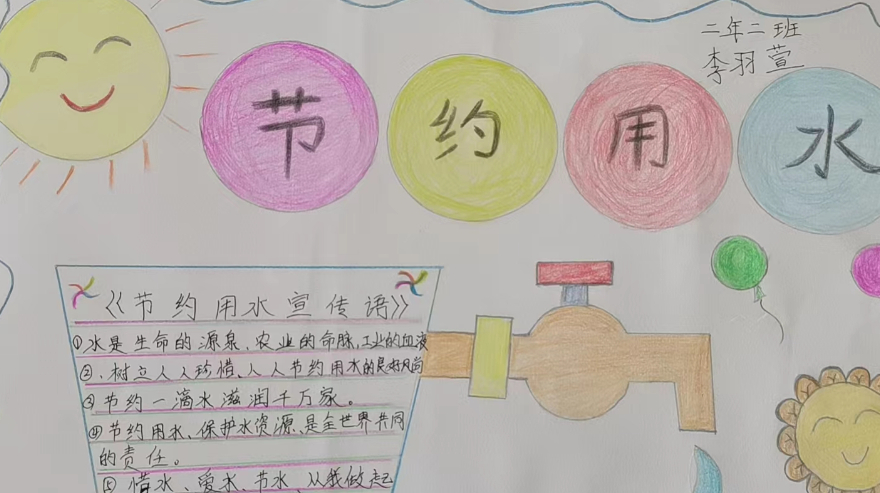 二年二班
李羽萱
节约用水
《节约用水宣传语》
①水是生命的源泉、农业的命脉,工业的血液
②、树立人人珍惜、人人节约用水的良好风尚
③节约一滴水滋润千万家。
④节约用水、保护水资源、是全世界共同
的责任。
⑤惜水、爱水、节水、从我做起